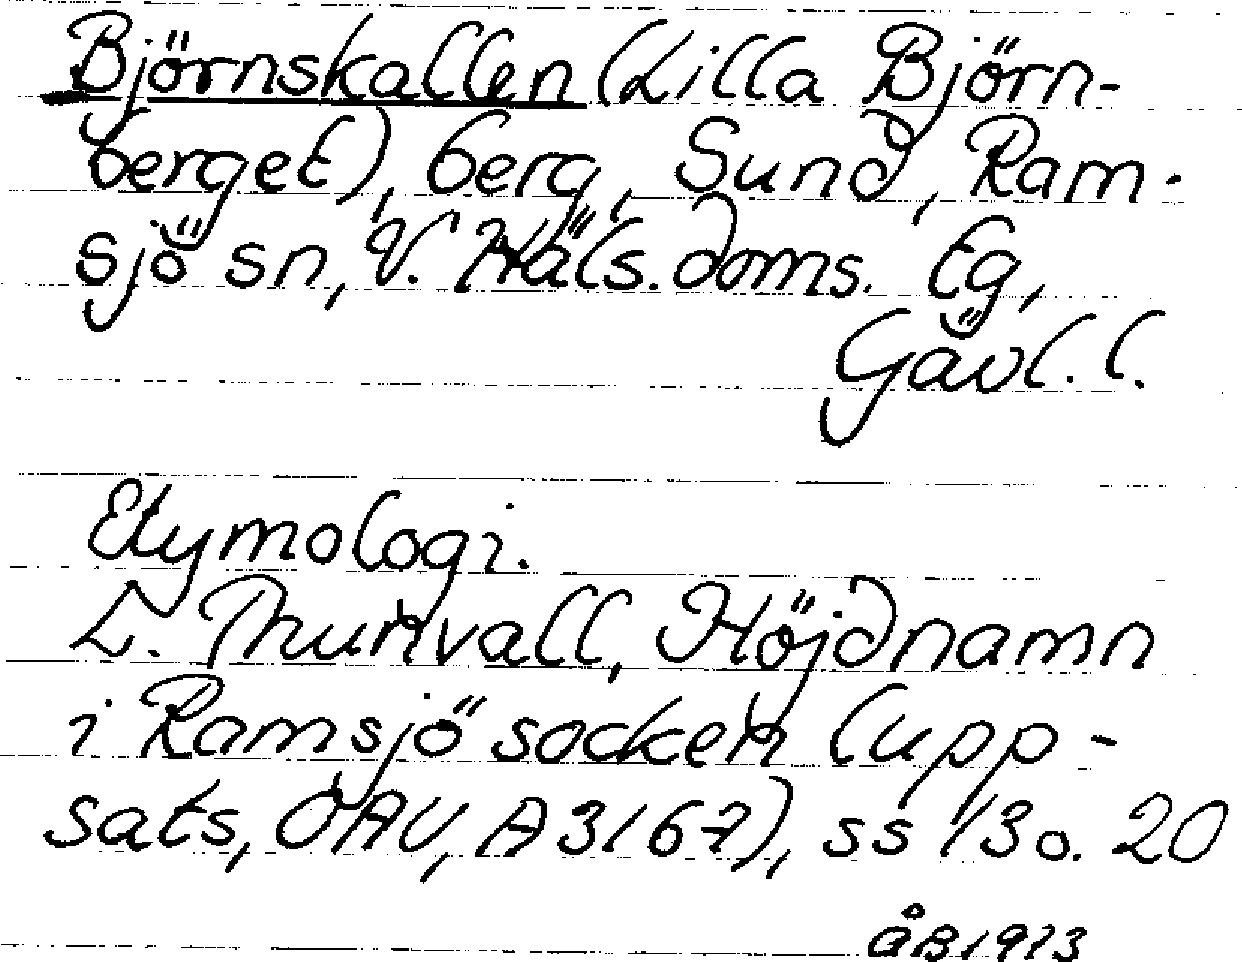 Björnskallen (Lilla Björn-
berget), berg, Sund, Ram-
sjö sn, V. Häls. doms. Eg,
Gävl. l.
Etymologi.
L. Thunvall, Höjdnamn
i Ramsjö socken (upp-
sats, OAU, A3167), ss 13 o. 20
åB 1973